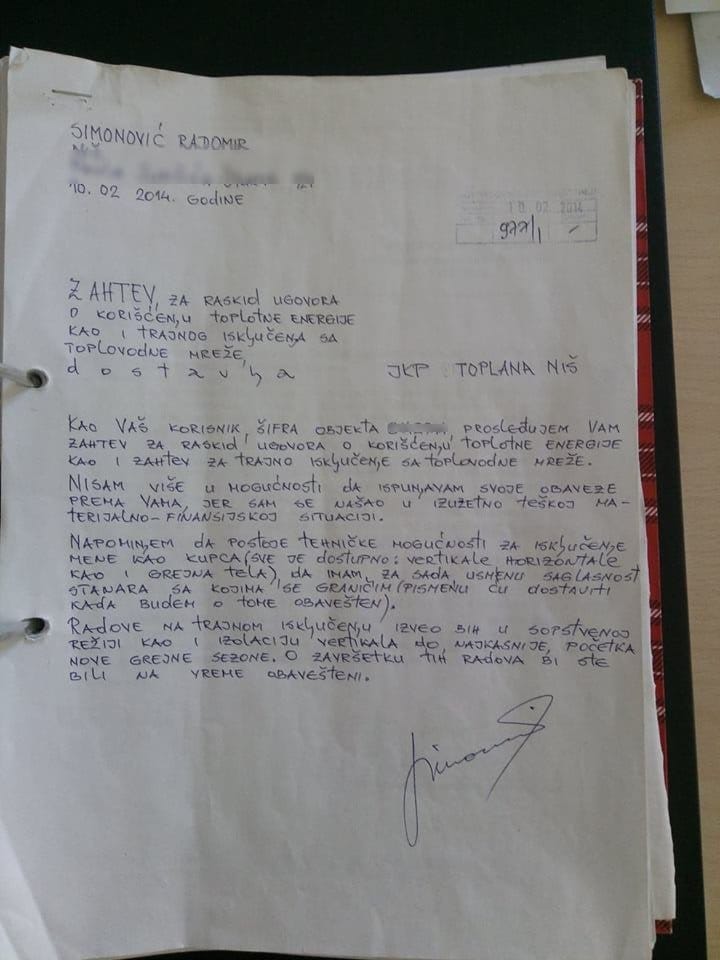 SIMONOVIĆ RADOMIR
NIŠ
10. 02 2014. GODINE
10 02 2014
977/1 -
ZAHTEV, ZA RASKID UGOVORA
O KORIŠĆENJU TOPLOTNE ENERGIJE
KAO I TRAJNOG ISKLJUČENJA SA
TOPLOVODNE MREŽE,
d o s t a v lj a JKP TOPLANA NIŠ
KAO VAŠ KORISNIK, ŠIFRA OBJEKTA PROSLEĐUJEM VAM
ZAHTEV ZA RASKID UGOVORA O KORIŠĆENJU TOPLOTNE ENERGIJE
KAO I ZAHTEV ZA TRAJNO ISKLJUČENJE SA TOPLOVODNE MREŽE.
NISAM VIŠE U MOGUĆNOSTI DA ISPUNJAVAM SVOJE OBAVEZE
PREMA VAMA, JER SAM SE NAŠAO U IZUZETNO TEŠKOJ MA-
TERIJALNO-FINANSIJSKOJ SITUACIJI.
NAPOMINJEM DA POSTOJE TEHNIČKE MOGUĆNOSTI ZA ISKLJUČENJE
MENE KAO KUPCA (SVE JE DOSTUPNO: VERTIKALE HORIZONTALE
KAO I GREJNA TELA), DA IMAM, ZA SADA, USMENU SAGLASNOST
STANARA SA KOJIMA SE GRANIČIM (PISMENU ĆU DOSTAVITI
KADA BUDEM O TOME OBAVEŠTEN).
RADOVE NA TRAJNOM ISKLJUČENJU IZVEO BIH U SOPSTVENOJ
REŽIJI KAO I IZOLACIJU VERTIKALA DO, NAJKASNIJE, POČETKA
NOVE GREJNE SEZONE. O ZAVRŠETKU TIH RADOVA BI STE
BILI NA VREME OBAVEŠTENI.